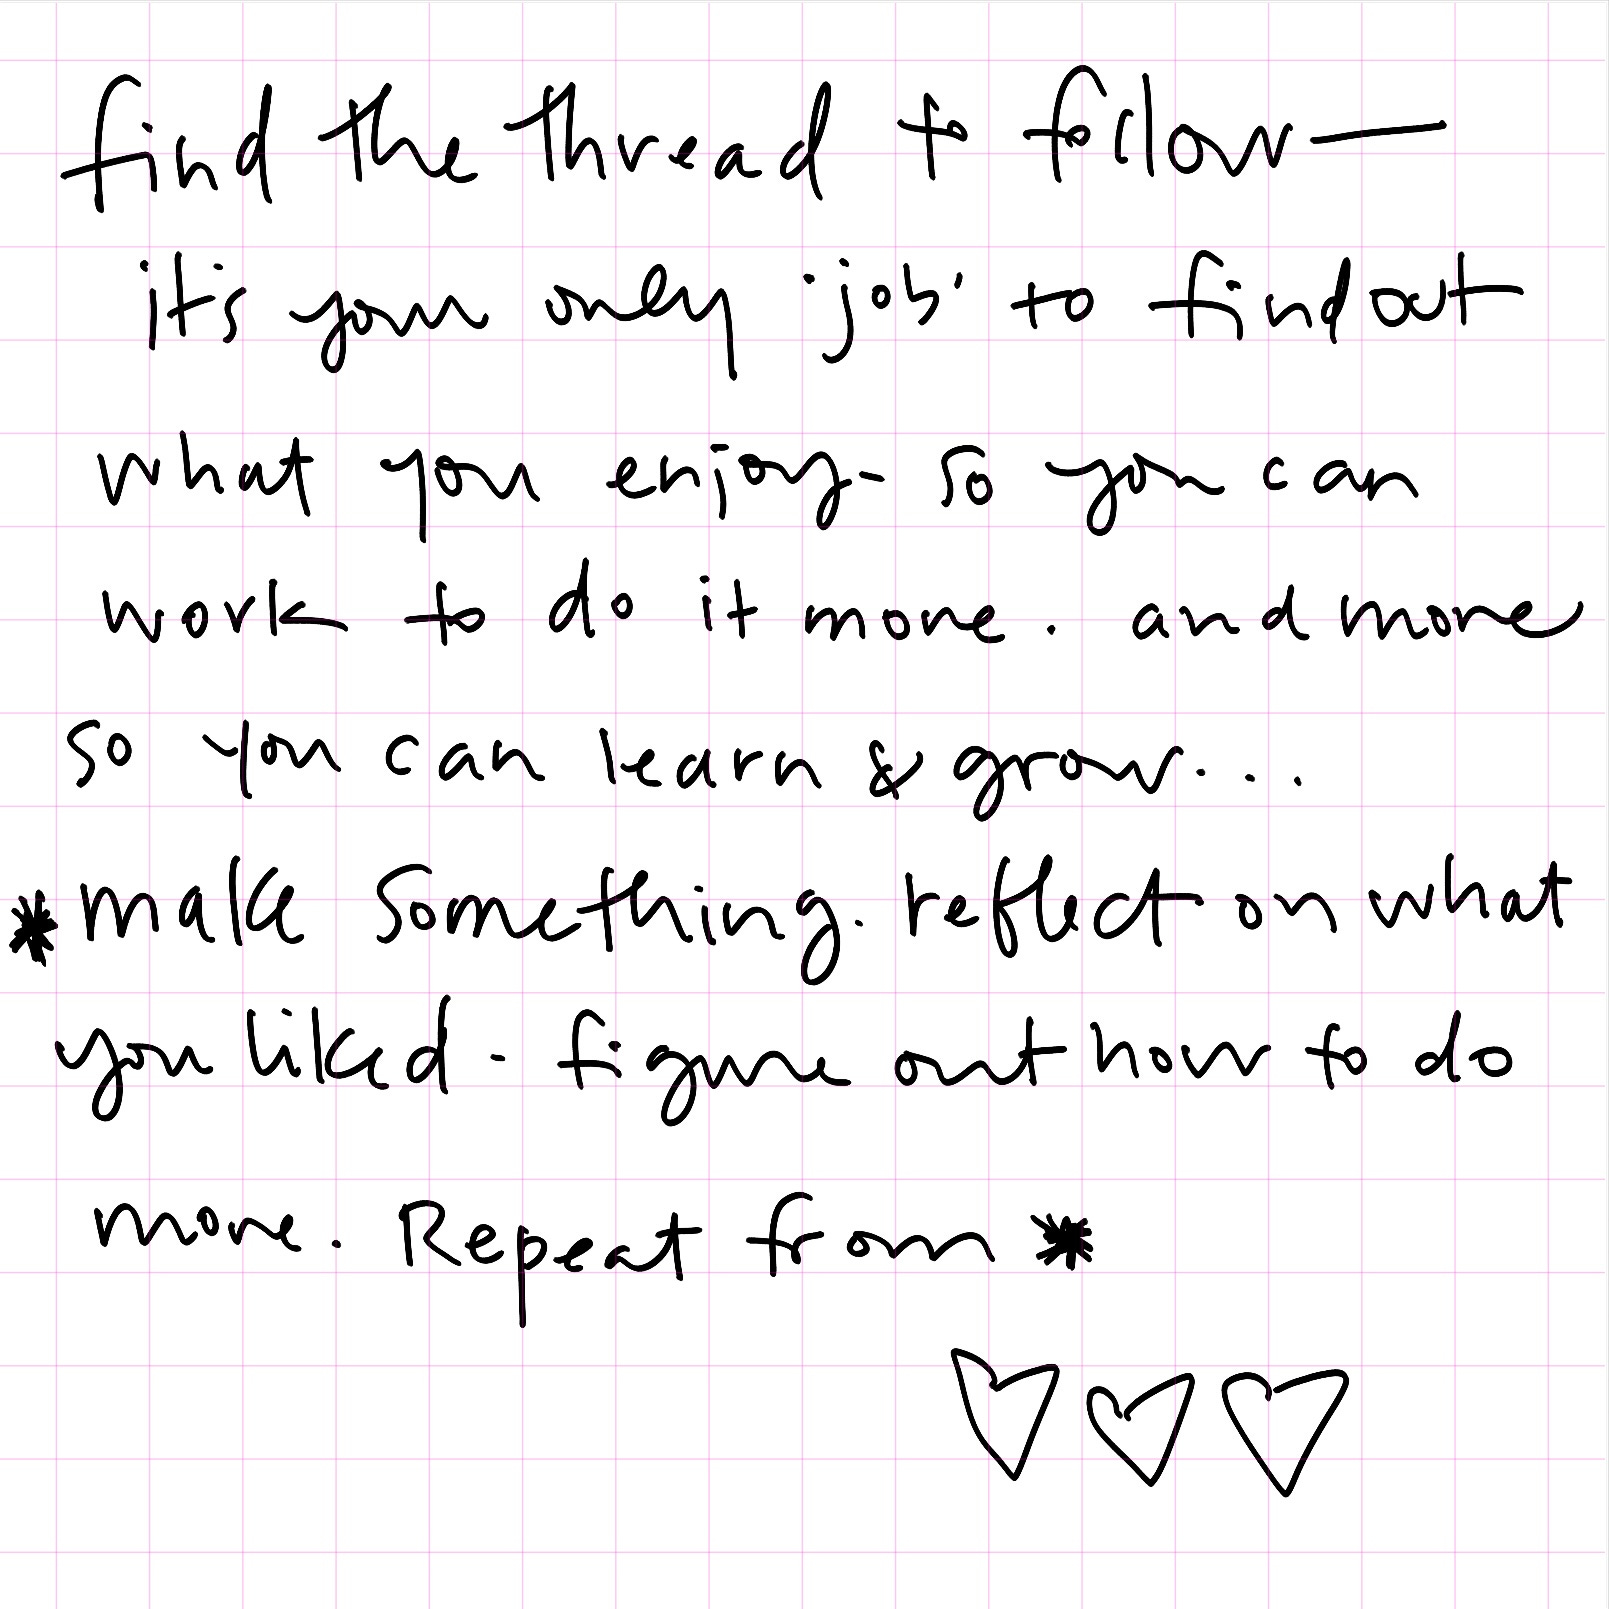 find the thread to follow—
it's your only 'job' to find out
what you enjoy - so you can
work to do it more. and more
so you can learn & grow...
* make something. reflect on what
you liked - figure out how to do
more. Repeat from *